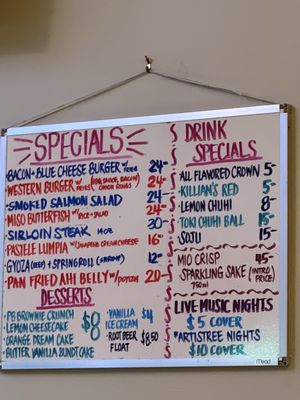 SPECIALS
BACON + BLUE CHEESE BURGER W/ FRIES 24-
WESTERN BURGER W/ FRIES (BBQ SAUCE, BACON, ONION RINGS) 24-
SMOKED SALMON SALAD 24-
MISO BUTTERFISH W/ RICE + SALAD 24-
SIRLOIN STEAK 30-
PASTELE LUMPIA W/ JALAPENO CREAM CHEESE 16-
GYOZA (BEEF) & SPRING ROLL (SHRIMP) 12-
PAN FRIED AHI BELLY W/ PONZU 20-
DESSERTS
PB BROWNIE CRUNCH
LEMON CHEESECAKE
ORANGE DREAM CAKE
BUTTER VANILLA BUNDTCAKE
$8
VANILLA ICE CREAM $4
ROOT BEER FLOAT $8.50
DRINK
SPECIALS
ALL FLAVORED CROWN 5-
KILLIAN'S RED 5-
LEMON CHUHI 8-
TOKI CHUHI BALL 15-
SOJU 15-
MIO CRISP 45-
SPARKLING SAKE (INTRO PRICE)
750ml
LIVE MUSIC NIGHTS
$5 COVER
ARTISTREE NIGHTS
$10 COVER
Mead